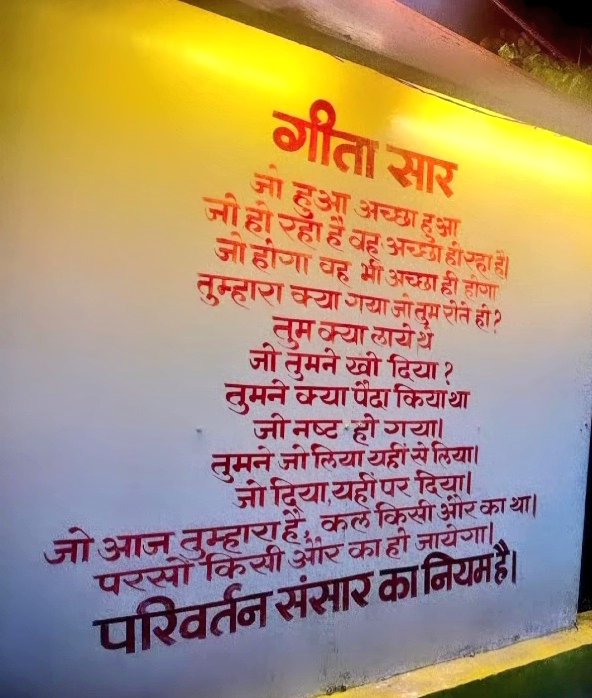 गीता सार
जो हुआ अच्छा हुआ
जो हो रहा है वह अच्छा हो रहा है।
जो होगा वह भी अच्छा ही होगा
तुम्हारा क्या गया जो तुम रोते हो?
तुम क्या लाये थे
जो तुमने खो दिया?
तुमने क्या पैदा किया था
जो नष्ट हो गया।
तुमने जो लिया यहीं से लिया।
जो दिया यहीं पर दिया।
जो आज तुम्हारा है, कल किसी और का था।
परसो किसी और का हो जायेगा।
परिवर्तन संसार का नियम है।